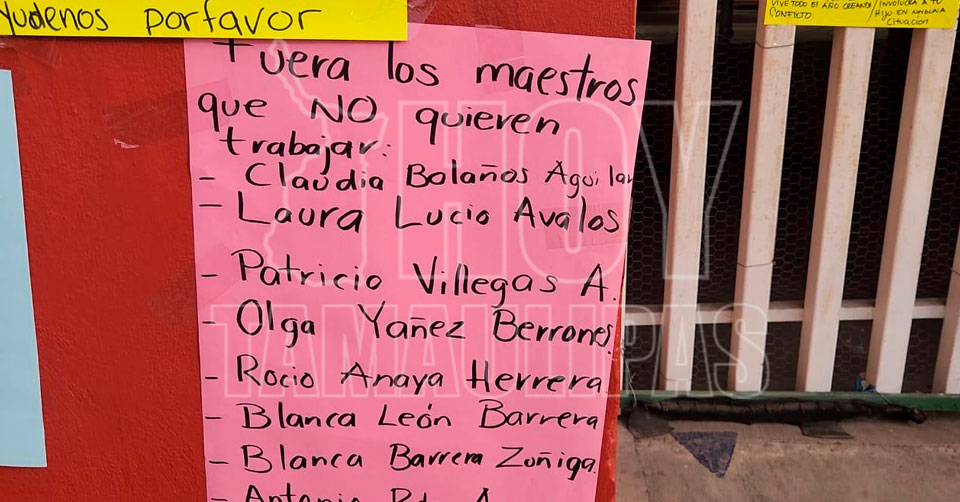 yudenos porfavor
VIVE TODO EL AÑO CREANDO
CONFLICTO
INVOLUCRA A TU
HIJO EN NINGUNA
CITUACIÓN
Fuera los maestros
que NO quieren
trabajar:
- Claudia Bolaños Aguilar
- Laura Lucio Avalos
- Patricio Villegas A.
- Olga Yañez Berrones
- Rocio Anaya Herrera
- Blanca León Barrera
- Blanca Barrera Zuñiga.
- Antonio
HOY
TAMAULIPAS